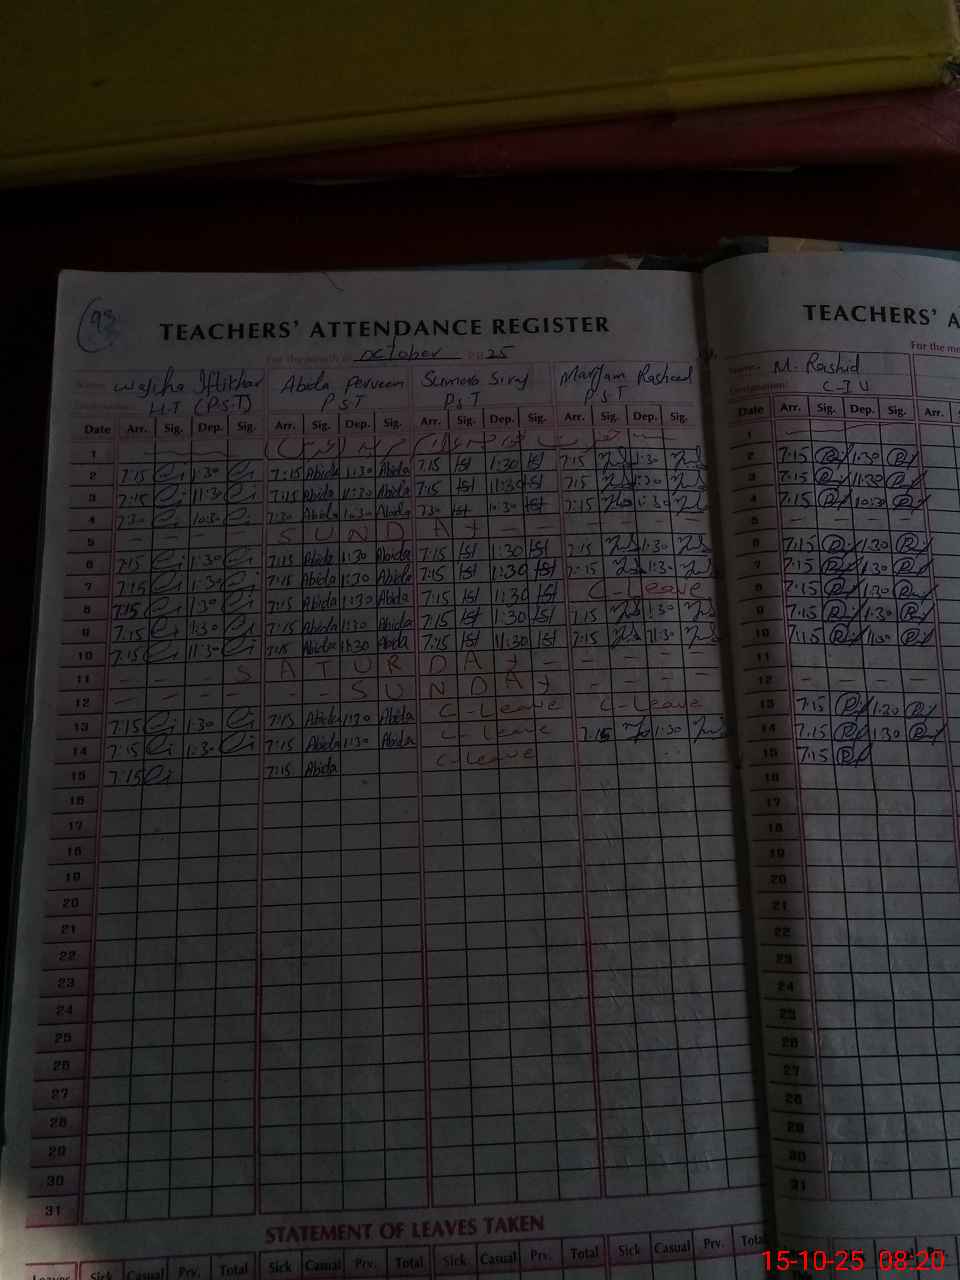 93
TEACHERS' ATTENDANCE REGISTER
For the month of October 2025
Name Wajiha Iftikhar Abida Perveen Sumera Siraj Maryam Rasheed
Designation H.T (P.S.T) P S T P S T P S T
Date Arr. Sig. Dep. Sig. Arr. Sig. Dep. Sig. Arr. Sig. Dep. Sig. Arr. Sig. Dep. Sig.
1
2 7:15 1:30 7:15 Abida 1:30 Abida 7:15 1:30 7:15 1:30
3 7:15 11:30 7:15 Abida 11:30 Abida 7:15 11:30 7:15 11:30
4 7:30 10:30 7:30 Abida 10:30 Abida 7:30 10:30 7:15 10:30
5 – – – – S U N D A Y – – –
6 7:15 1:30 7:15 Abida 1:30 Abida 7:15 1:30 7:15 1:30
7 7:15 1:30 7:15 Abida 1:30 Abida 7:15 1:30 7:15 1:30
8 7:15 1:30 7:15 Abida 1:30 Abida 7:15 11:30 C-Leave
9 7:15 1:30 7:15 Abida 1:30 Abida 7:15 1:30 7:15 1:30
10 7:15 11:30 7:15 Abida 11:30 Abida 7:15 11:30 7:15 11:30
11 – – – S A T U R D A Y – – – – –
12 – – – – – – S U N D A Y – – – –
13 7:15 1:30 7:15 Abida 1:30 Abida C-Leave C-Leave
14 7:15 1:30 7:15 Abida 1:30 Abida C-Leave 7:15 1:30
15 7:15 7:15 Abida C-Leave
16
17
18
19
20
21
22
23
24
25
26
27
28
29
30
31
STATEMENT OF LEAVES TAKEN
Leaves Sick Casual Prv. Total Sick Casual Prv. Total Sick Casual Prv. Total Sick Casual Prv. Total
TEACHERS' A
For the mo
Name. M. Rashid
Designation:
Date Arr. Sig. Dep. Sig. Arr. S
1
2 7:15 1:30
3 7:15 11:30
4 7:15 10:30
5 – – – –
6 7:15 1:30
7 7:15 1:30
8 7:15 1:30
9 7:15 1:30
10 7:15 11:30
11 – – – –
12 – – – –
13 7:15 1:30
14 7:15 1:30
15 7:15
16
17
18
19
20
21
22
23
24
25
26
27
28
29
30
31
15-10-25 08:20